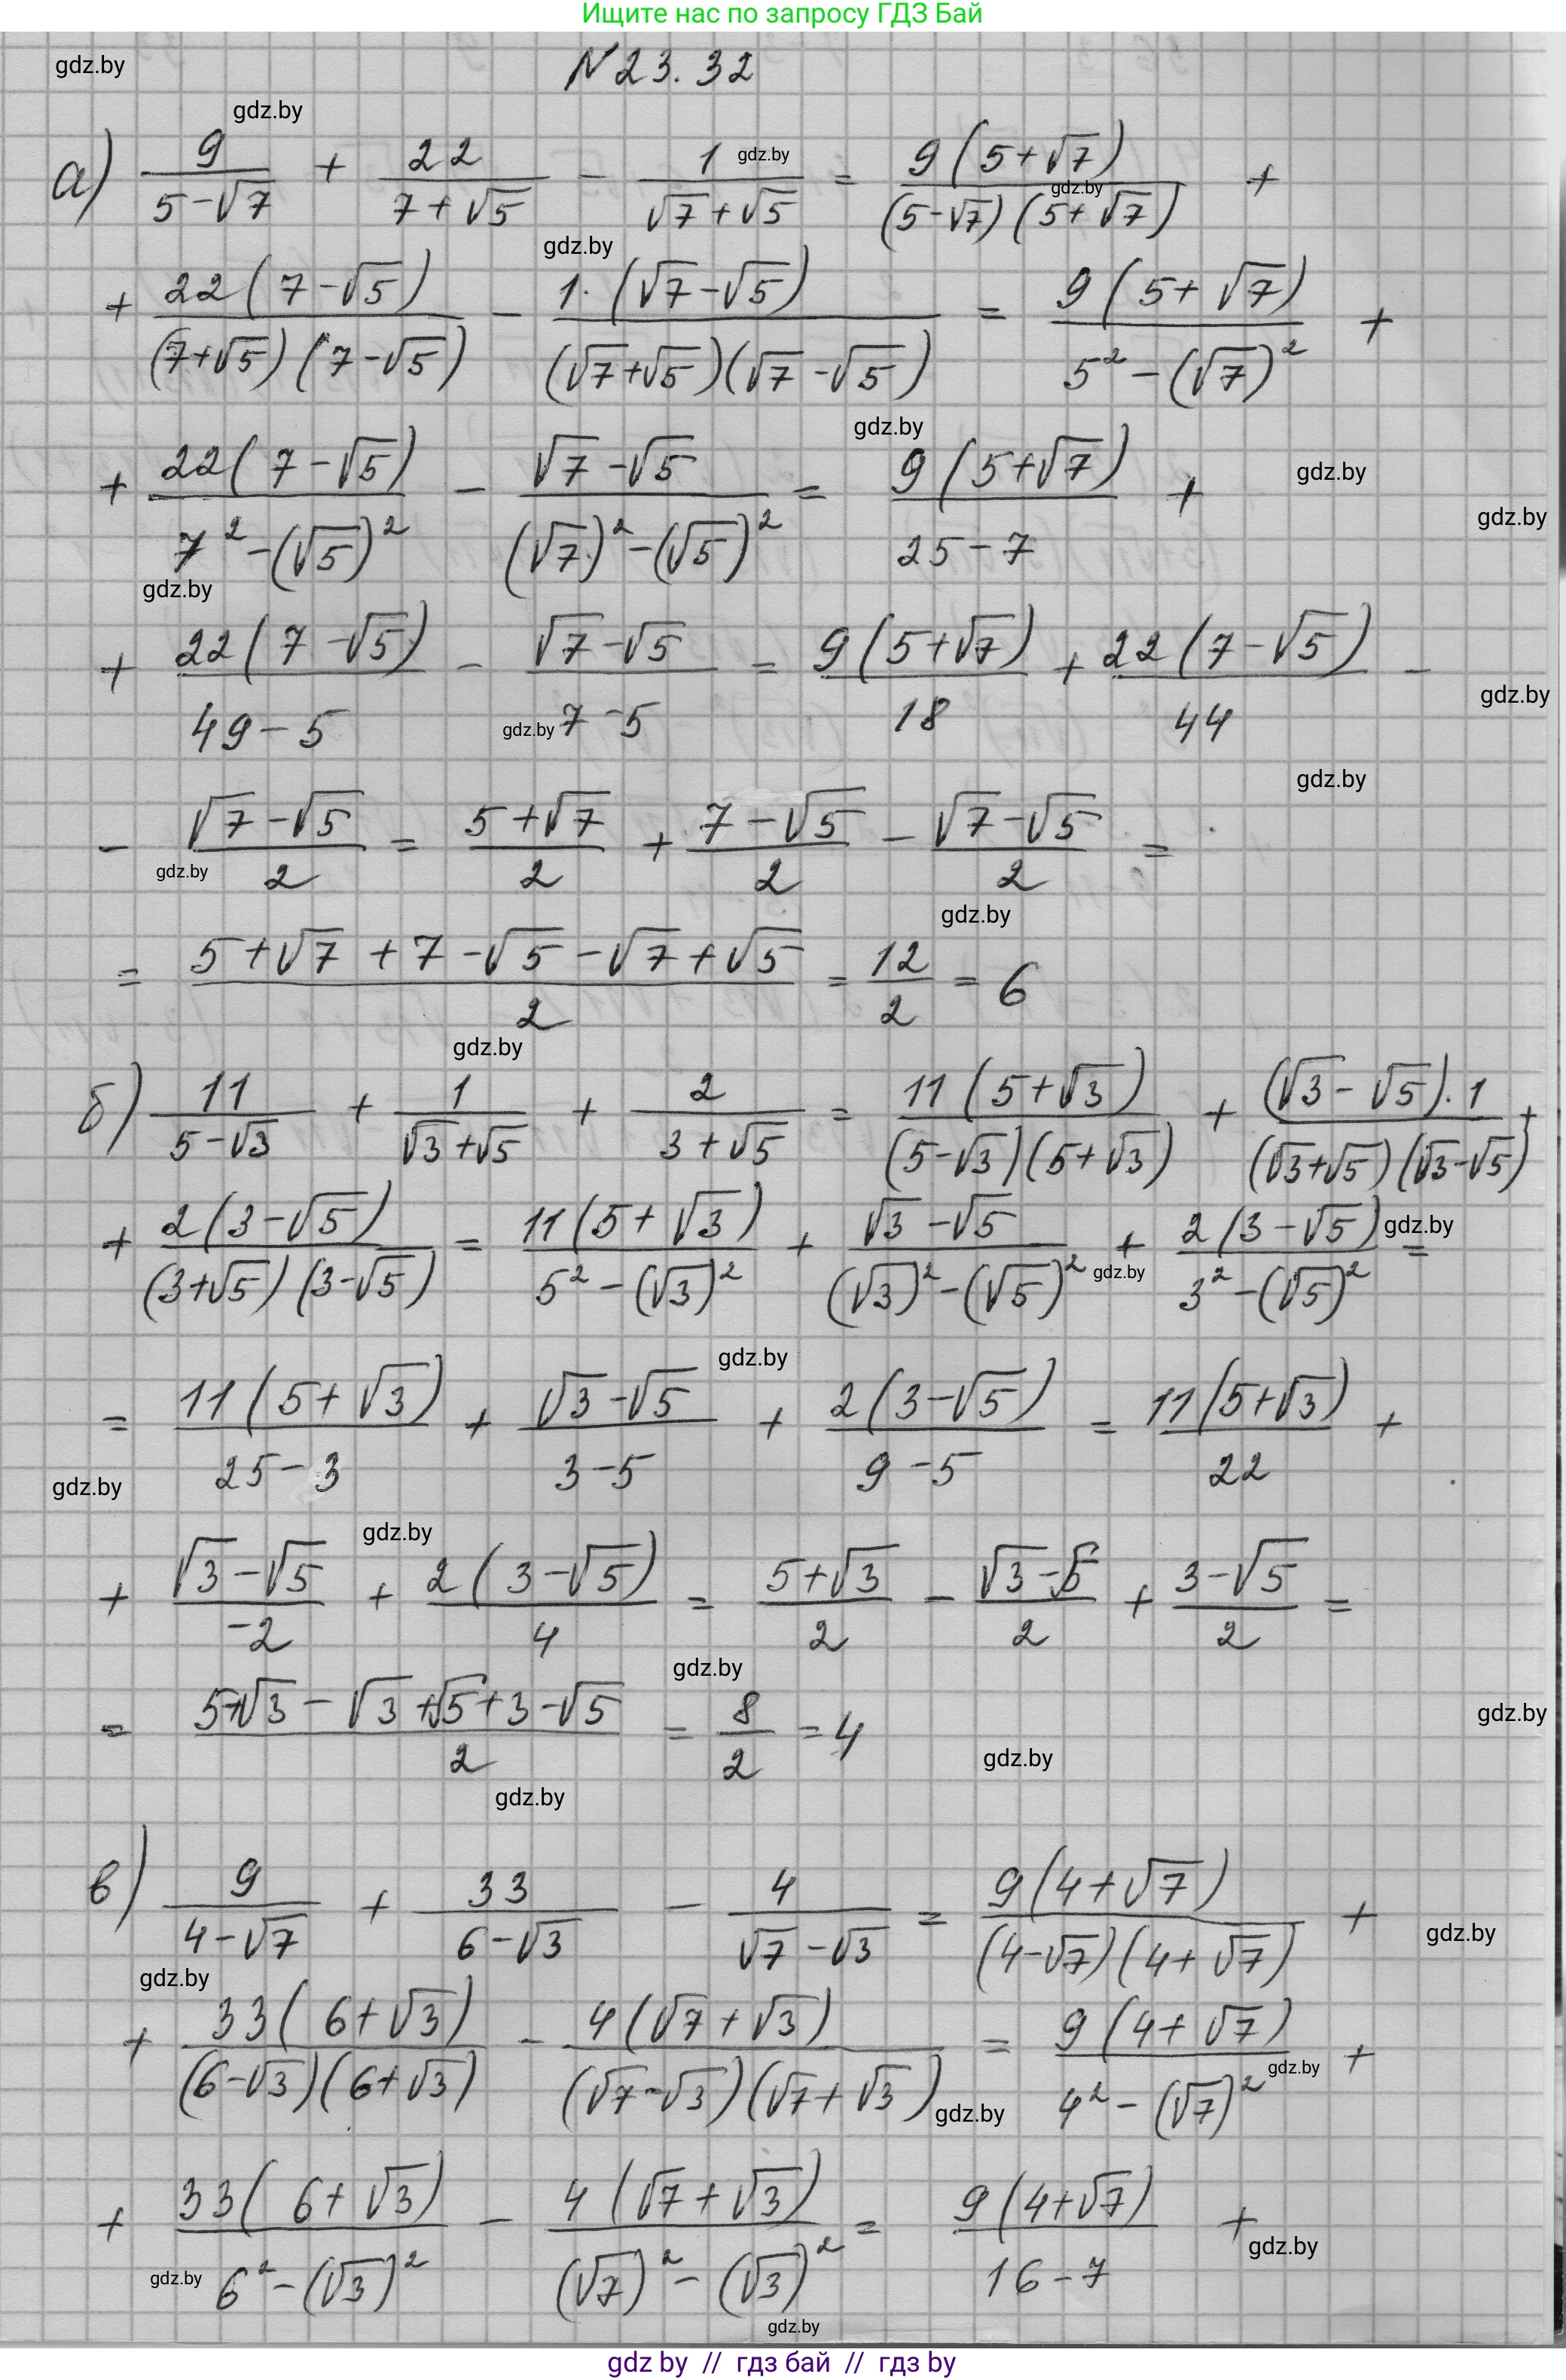 Ищите нас по запросу ГДЗ Бай
gdz.by
N 23.32
gdz.by
а) 9/(5-√7) + 22/(7+√5) - 1/(√7+√5) = 9(5+√7)/((5-√7)(5+√7)) +
gdz.by
gdz.by
gdz.by
+ 22(7-√5)/((7+√5)(7-√5)) - 1·(√7-√5)/((√7+√5)(√7-√5)) = 9(5+√7)/(5²-(√7)²) +
gdz.by
+ 22(7-√5)/(7²-(√5)²) - (√7-√5)/((√7)²-(√5)²) = 9(5+√7)/(25-7) +
gdz.by
gdz.by
gdz.by
+ 22(7-√5)/(49-5) - (√7-√5)/(7-5) = 9(5+√7)/18 + 22(7-√5)/44 -
gdz.by
gdz.by
gdz.by
- (√7-√5)/2 = (5+√7)/2 + (7-√5)/2 - (√7-√5)/2 =
gdz.by
gdz.by
= (5+√7+7-√5-√7+√5)/2 = 12/2 = 6
gdz.by
б) 11/(5-√3) + 1/(√3+√5) + 2/(3+√5) = 11(5+√3)/((5-√3)(5+√3)) + (√3-√5)·1/((√3+√5)(√3-√5)) +
+ 2(3-√5)/((3+√5)(3-√5)) = 11(5+√3)/(5²-(√3)²) + (√3-√5)/((√3)²-(√5)²) + 2(3-√5)/(3²-(√5)²) =
gdz.by
gdz.by
gdz.by
= 11(5+√3)/(25-3) + (√3-√5)/(3-5) + 2(3-√5)/(9-5) = 11(5+√3)/22 +
gdz.by
gdz.by
+ (√3-√5)/(-2) + 2(3-√5)/4 = (5+√3)/2 - (√3-√5)/2 + (3-√5)/2 =
gdz.by
= (5+√3-√3+√5+3-√5)/2 = 8/2 = 4
gdz.by
gdz.by
gdz.by
в) 9/(4-√7) + 33/(6-√3) - 4/(√7-√3) = 9(4+√7)/((4-√7)(4+√7)) +
gdz.by
gdz.by
+ 33(6+√3)/((6-√3)(6+√3)) - 4(√7+√3)/((√7-√3)(√7+√3)) = 9(4+√7)/(4²-(√7)²) +
gdz.by
gdz.by
+ 33(6+√3)/(6²-(√3)²) - 4(√7+√3)/((√7)²-(√3)²) = 9(4+√7)/(16-7) +
gdz.by
gdz.by
gdz.by
gdz by // гдз бай // гдз by